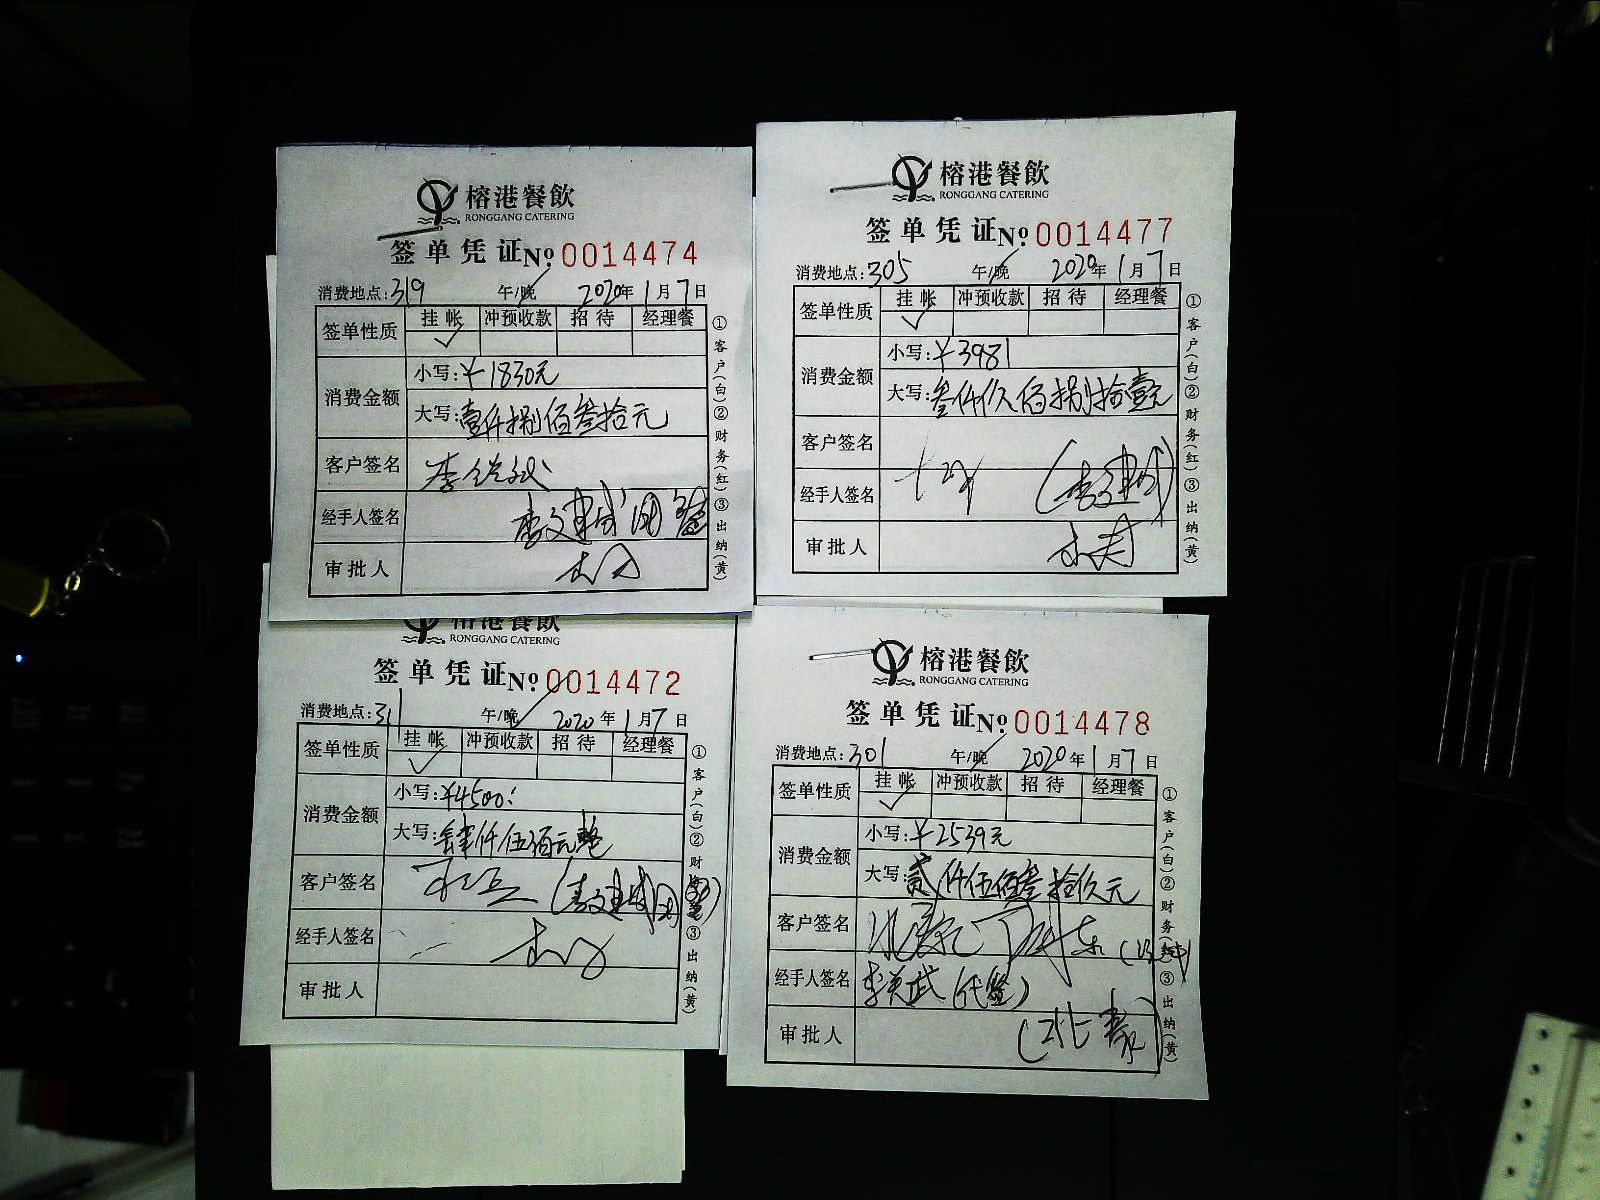 榕港餐飲
RONGGANG CATERING
签单凭证 No 0014474
消费地点:319 午/晚 2020年1月7日
签单性质 挂帐 冲预收款 招待 经理餐
✓
消费金额
小写:¥1830元
大写:壹仟捌佰叁拾元
客户签名
经手人签名
审批人
①客户(白)②财务(红)③出纳(黄)
榕港餐飲
RONGGANG CATERING
签单凭证 No 0014477
消费地点:305 午/晚 2020年1月7日
签单性质 挂帐 冲预收款 招待 经理餐
✓
消费金额
小写:¥3981
大写:叁仟玖佰捌拾壹元
客户签名
经手人签名
审批人
①客户(白)②财务(红)③出纳(黄)
榕港餐飲
RONGGANG CATERING
签单凭证 No 0014472
消费地点:311 午/晚 2020年1月7日
签单性质 挂帐 冲预收款 招待 经理餐
✓
消费金额
小写:¥4500
大写:肆仟伍佰元整
客户签名
经手人签名
审批人
①客户(白)②财务 ③出纳(黄)
榕港餐飲
RONGGANG CATERING
签单凭证 No 0014478
消费地点:301 午/晚 2020年1月7日
签单性质 挂帐 冲预收款 招待 经理餐
✓
消费金额
小写:¥2539元
大写:贰仟伍佰叁拾玖元
客户签名
经手人签名 (代签)
审批人
①客户(白)②财务 ③出纳(黄)